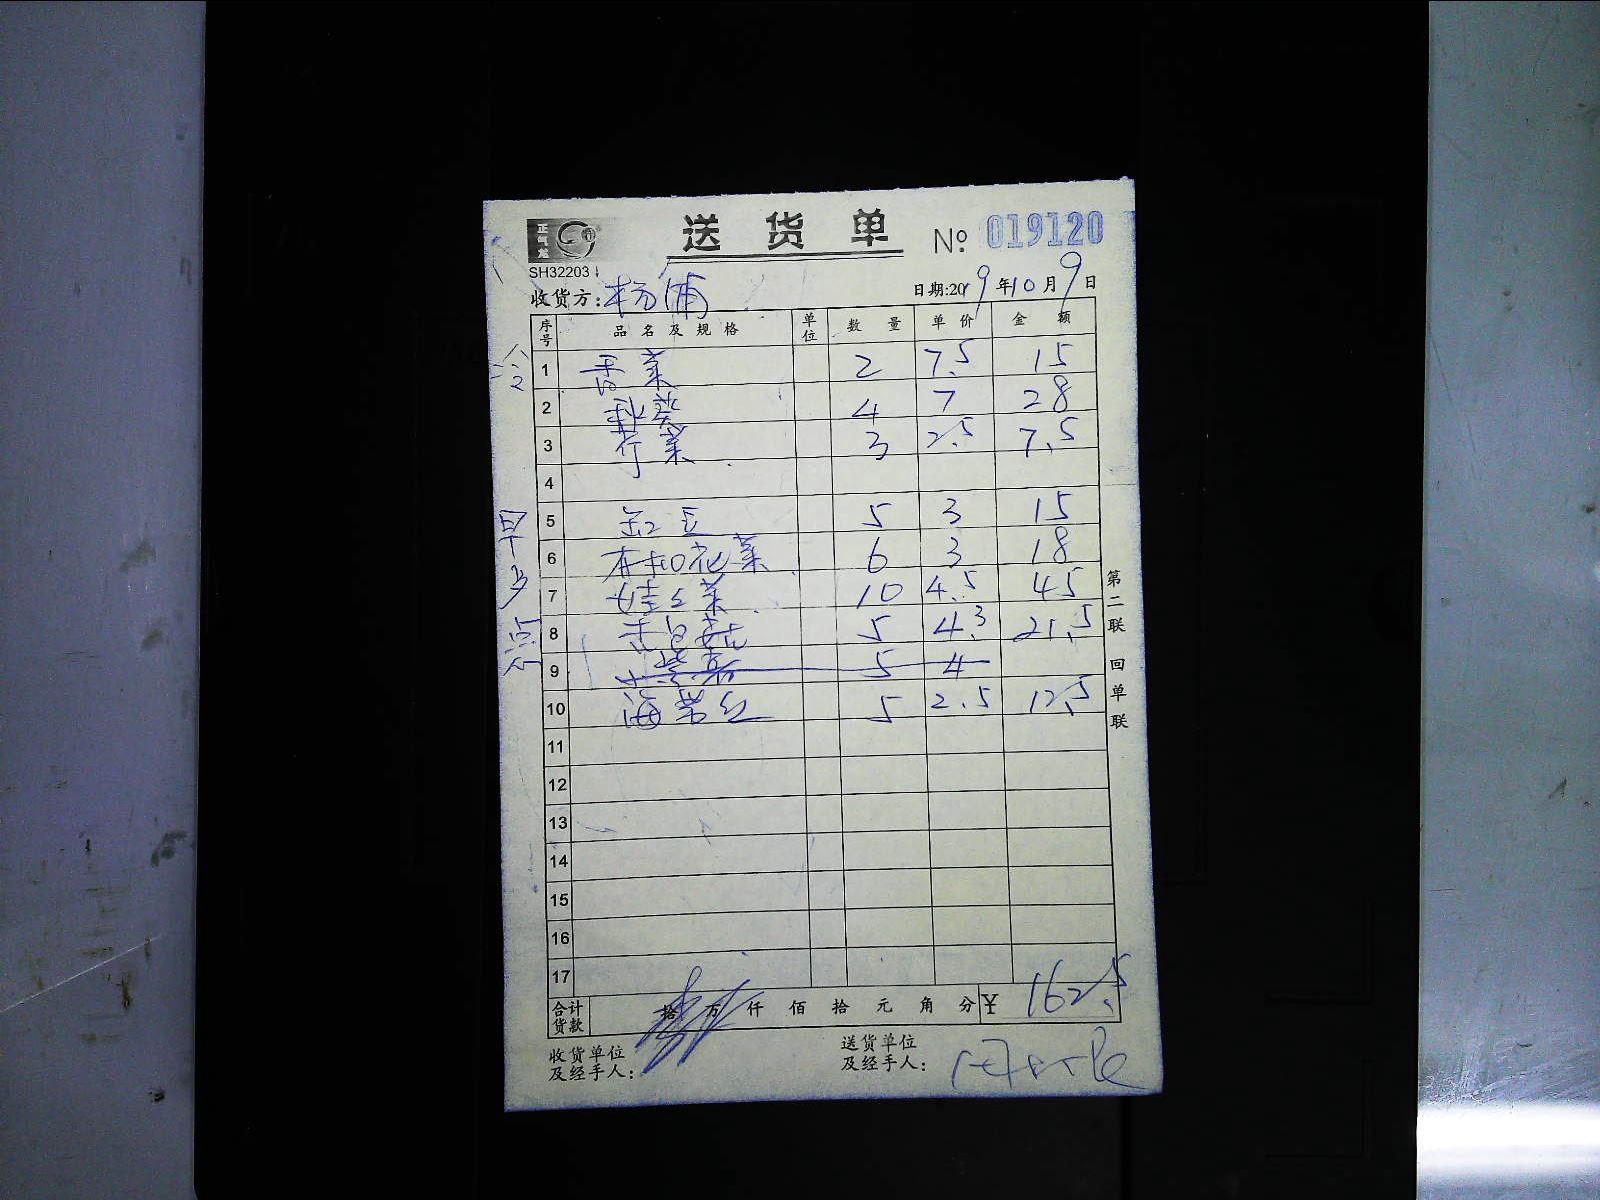 正气龙
送货单
№ 019120
SH32203
收货方: 杨浦
日期:2019年10月9日
序号 品名及规格 单位 数量 单价 金额
冷
1 香菜 2 7.5 15
2 4 7 28
3 菜 3 2.5 7.5
4
早点
5 豆 5 3 15
6 有机花菜 6 3 18
7 娃娃菜 10 4.5 45
8 5 4.3 21.5
9 5 4
10 海带丝 5 2.5 12.5
11
12
13
14
15
16
17
第二联 回单联
合计货款 拾万仟佰拾元角分 ¥ 162.5
收货单位及经手人:
送货单位及经手人: